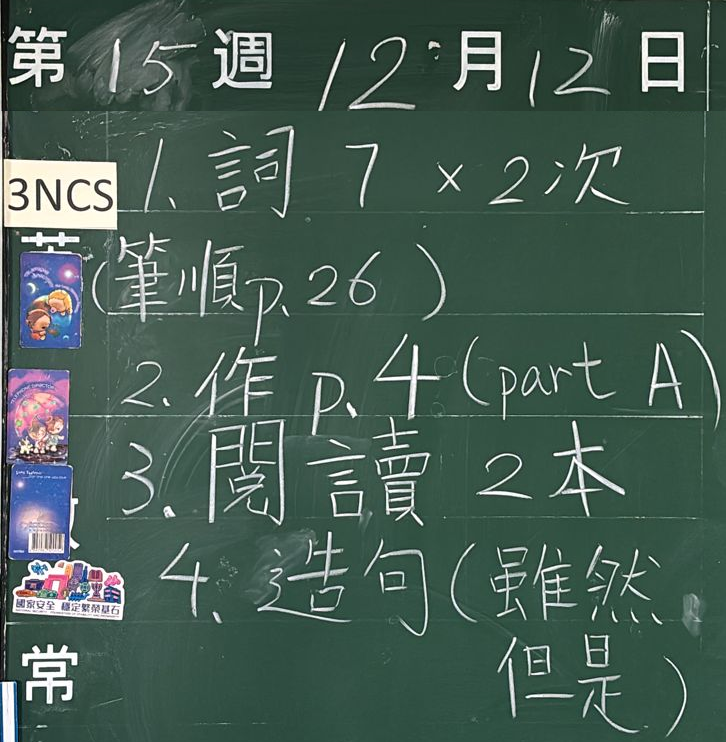 第 15 週 12 月 12 日
3NCS
1. 詞 7 × 2次
(筆順p.26)
2. 作 p.4 (part A)
3. 閱讀 2本
4. 造句(雖然
但是)
國家安全 穩定繁榮基石
常